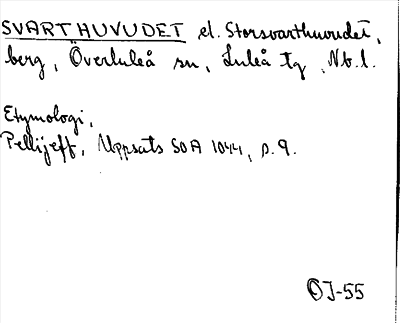 SVARTHUVUDET el. Storsvarthuvudet,
berg, Överluleå sn, Luleå tg, Nb. l.
Etymologi,
Pellijeff, Uppsats SOA 1044, s. 9.
OJ-55